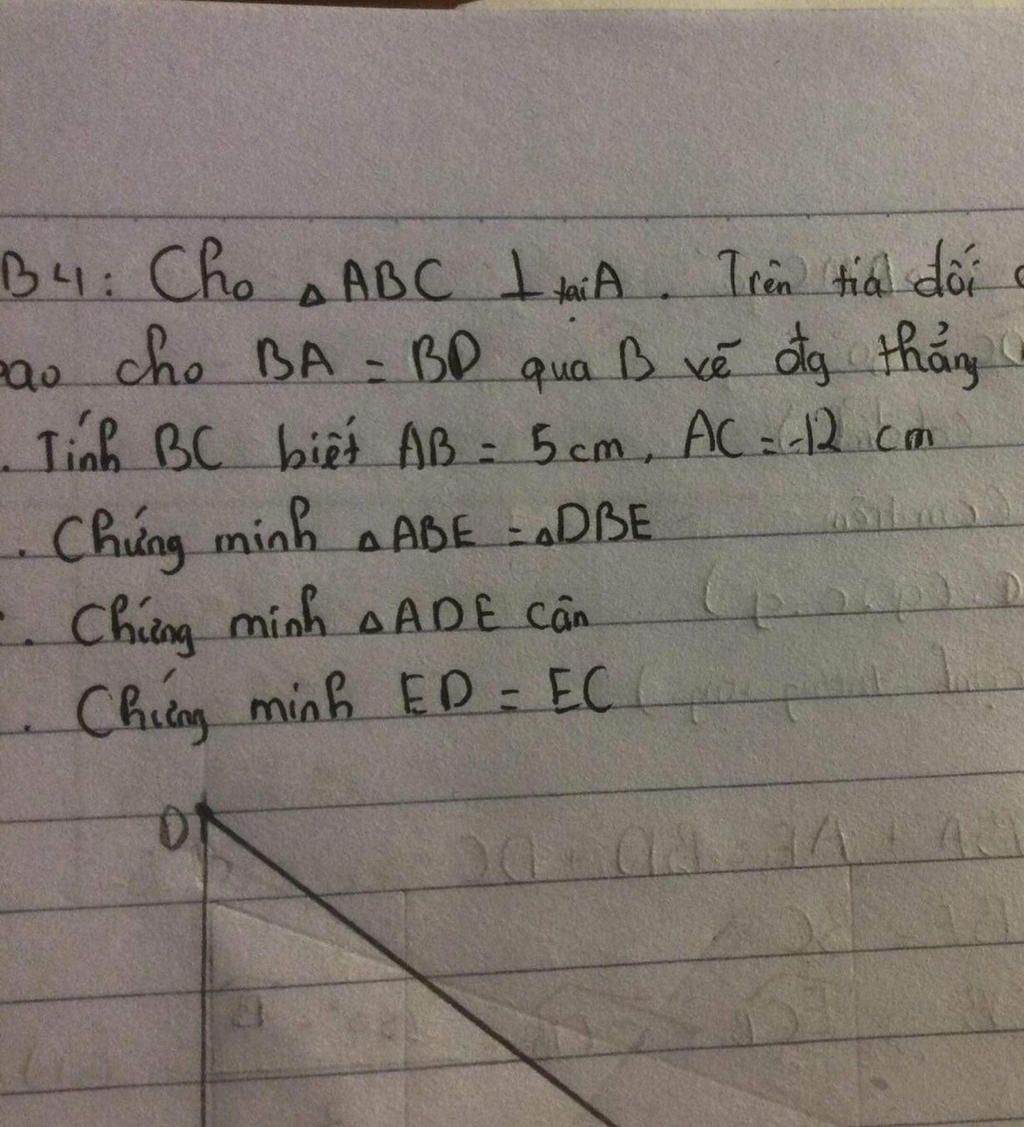 B4: Cho △ABC ⊥ tại A. Trên tia dối
cho BA = BD qua B vẽ đtg thẳng
. Tính BC biết AB = 5 cm, AC = 12 cm
. Chứng minh △ABE = △DBE
. Chứng minh △ADE cân
. Chứng minh ED = EC
D